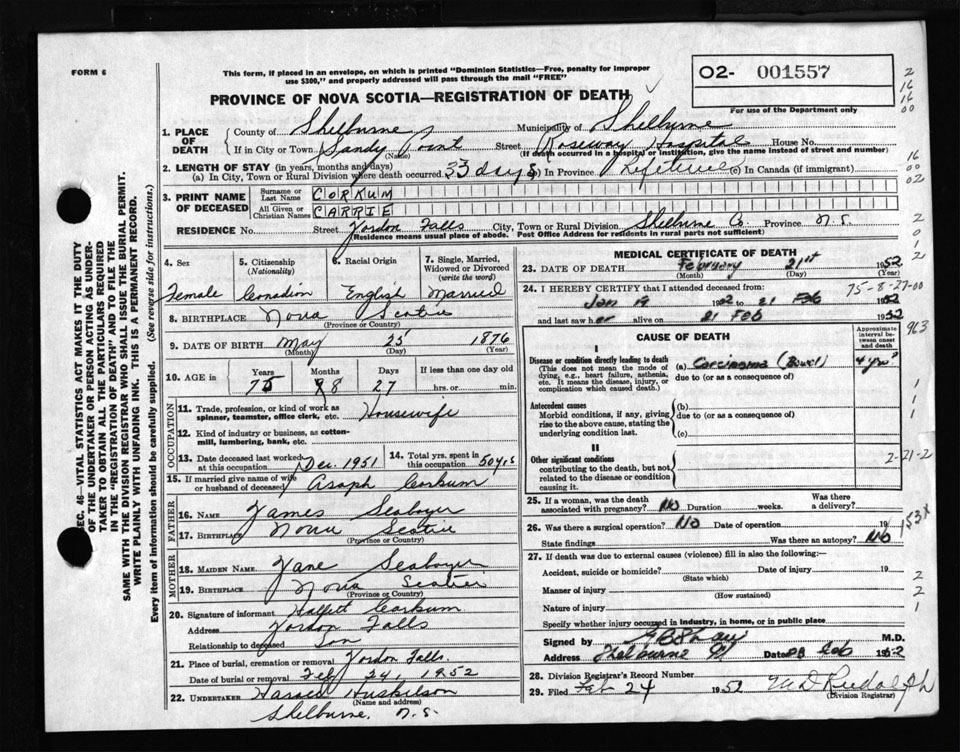 FORM 6
This form, if placed in an envelope, on which is printed "Dominion Statistics—Free, penalty for improper
use $300," and properly addressed will pass through the mail "FREE"
02- 001557
For use of the Department only
PROVINCE OF NOVA SCOTIA—REGISTRATION OF DEATH
1. PLACE OF DEATH
County of Shelburne Municipality of Shelburne
If in City or Town Sandy Point (Name) Street Roseway Hospital House No.
(If death occurred in a hospital or institution, give the name instead of street and number)
2. LENGTH OF STAY (in years, months and days)
(a) In City, Town or Rural Division where death occurred 33 days (b) In Province Lifetime (c) In Canada (if immigrant)
3. PRINT NAME OF DECEASED
Surname or Last Name CORKUM
All Given or Christian Names CARRIE
RESIDENCE No. Street Jordon Falls City, Town or Rural Division Shelburne Co Province N.S.
(Residence means usual place of abode. Post Office Address for residents in rural parts not sufficient)
4. Sex Female
5. Citizenship (Nationality) Canadian
6. Racial Origin English
7. Single, Married, Widowed or Divorced (write the word) Married
8. BIRTHPLACE Nova Scotia
(Province or Country)
9. DATE OF BIRTH May 25 1876
(Month) (Day) (Year)
10. AGE in Years Months Days If less than one day old
75 8 27 hrs. or min.
OCCUPATION
11. Trade, profession, or kind of work as spinner, teamster, office clerk, etc. Housewife
12. Kind of industry or business, as cotton-mill, lumbering, bank, etc.
13. Date deceased last worked at this occupation Dec. 1951
14. Total yrs. spent in this occupation 50 yrs
15. If married give name of wife or husband of deceased Asaph Corkum
FATHER
16. NAME James Seaboyer
17. BIRTHPLACE Nova Scotia
(Province or Country)
MOTHER
18. MAIDEN NAME Jane Seaboyer
19. BIRTHPLACE Nova Scotia
(Province or Country)
20. Signature of informant Corkum
Address Jordon Falls
Relationship to deceased Son
21. Place of burial, cremation or removal Jordon Falls
Date of burial or removal Feb 24, 1952
22. UNDERTAKER Harold Huskilson
(Name and address)
Shelburne, N.S.
MEDICAL CERTIFICATE OF DEATH
23. DATE OF DEATH February 21st 1952
(Month) (Day) (Year)
24. I HEREBY CERTIFY that I attended deceased from: 75-8-27-00
Jan 19 1952 to 21 Feb 1952
and last saw her alive on 21 Feb 1952
CAUSE OF DEATH
Approximate interval between onset and death
I
Disease or condition directly leading to death
(This does not mean the mode of dying, e.g., heart failure, asthenia, etc. It means the disease, injury, or complication which caused death.)
(a) Carcinoma (Bowel) 4 yrs?
due to (or as a consequence of)
Antecedent causes
Morbid conditions, if any, giving rise to the above cause, stating the underlying condition last.
(b)
due to (or as a consequence of)
(c)
II
Other significant conditions
contributing to the death, but not related to the disease or condition causing it.
25. If a woman, was the death associated with pregnancy? No Duration weeks. Was there a delivery?
26. Was there a surgical operation? No Date of operation 19
State findings Was there an autopsy? No
27. If death was due to external causes (violence) fill in also the following:—
Accident, suicide or homicide? Date of injury 19
(State which)
Manner of injury
(How sustained)
Nature of injury
Specify whether injury occurred in industry, in home, or in public place
Signed by M.D.
Address Shelburne NS Date Feb 1952
28. Division Registrar's Record Number
29. Filed Feb 24 1952 M D Rudolph
(Division Registrar)
SEC. 46—VITAL STATISTICS ACT MAKES IT THE DUTY
OF THE UNDERTAKER OR PERSON ACTING AS UNDER-
TAKER TO OBTAIN ALL THE PARTICULARS REQUIRED
IN THE "REGISTRATION OF DEATH" AND TO FILE THE
SAME WITH THE DIVISION REGISTRAR WHO SHALL ISSUE THE BURIAL PERMIT.
WRITE PLAINLY WITH UNFADING INK. THIS IS A PERMANENT RECORD.
Every item of information should be carefully supplied. (See reverse side for instructions.)
2
16
16
00
16
00
02
2
0
1
2
963
1
1
1
2-21-2
153x
2
2
1